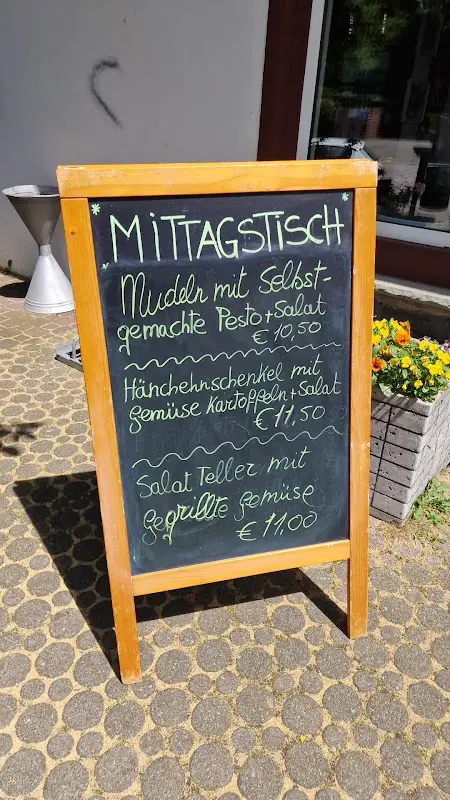 MiTTAGSTiSCH
Nudeln mit Selbst-
gemachte Pesto + Salat
€ 10,50
Hänchehnschenkel mit
gemüse Kartoffeln + Salat
€ 11,50
Salat Teller mit
gegrillte gemüse
€ 11,00